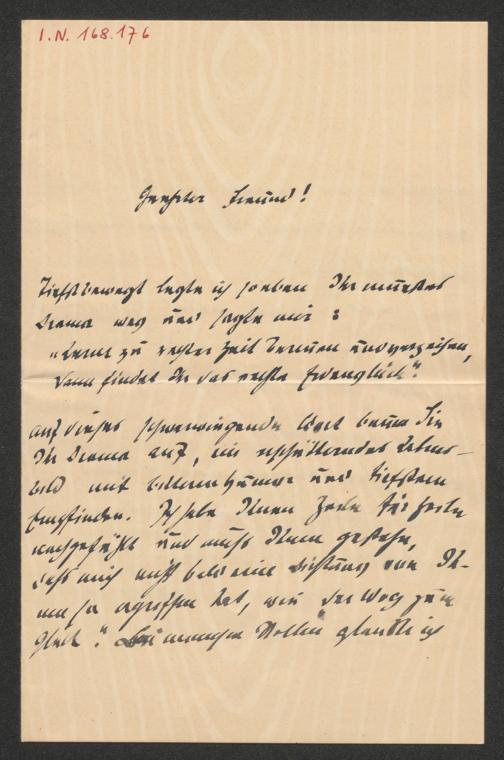 I.N. 168.176
Geehrter Freund!
Tiefbewegt legte ich soeben Ihr neuestes
Drama weg und sagte mir:
"Lerne zu rechter Zeit bereuen und verzeihen,
dann findet Ihr das rechte Erdenglück".
Auf dieses schwerwiegende Wort bauen Sie
Ihr Drama auf, ein erschütterndes Lebens-
bild mit bitterem Humor und tiefstem
Empfinden. Ich habe Ihnen Zeile für Zeile
nachgefühlt und muss Ihnen gestehn,
dass mich nicht bald eine Dichtung von Ih-
nen so ergriffen hat, wie "der Weg zum
Glück". Bei manchen Stellen glaubte ich